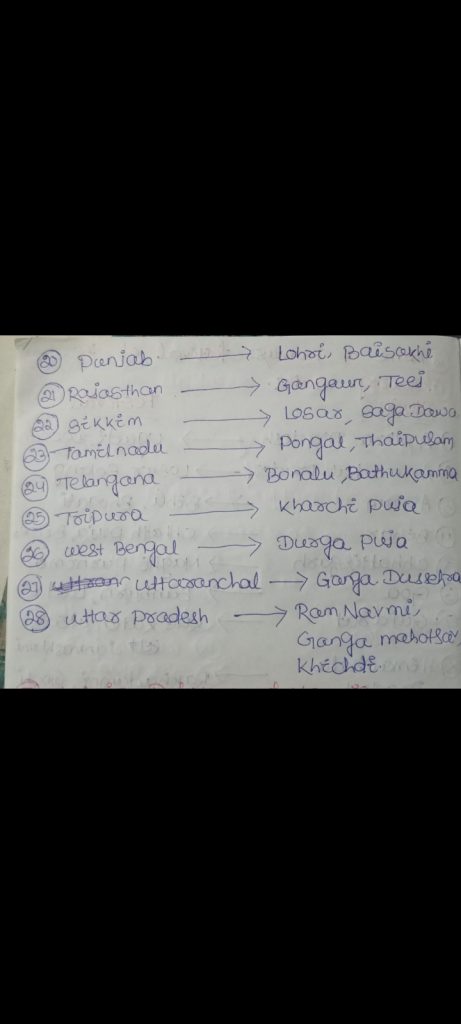 20 Punjab → Lohri, Baisakhi
21 Rajasthan → Gangaur, Teej
22 Sikkim → Losar, Saga Dawa
23 Tamilnadu → Pongal, Thaipusam
24 Telangana → Bonalu, Bathukamma
25 Tripura → Kharchi Puja
26 West Bengal → Durga Puja
27 Uttaranchal → Ganga Dussehra
28 Uttar Pradesh → Ram Navmi,
Ganga mahotsav,
Khichdi.